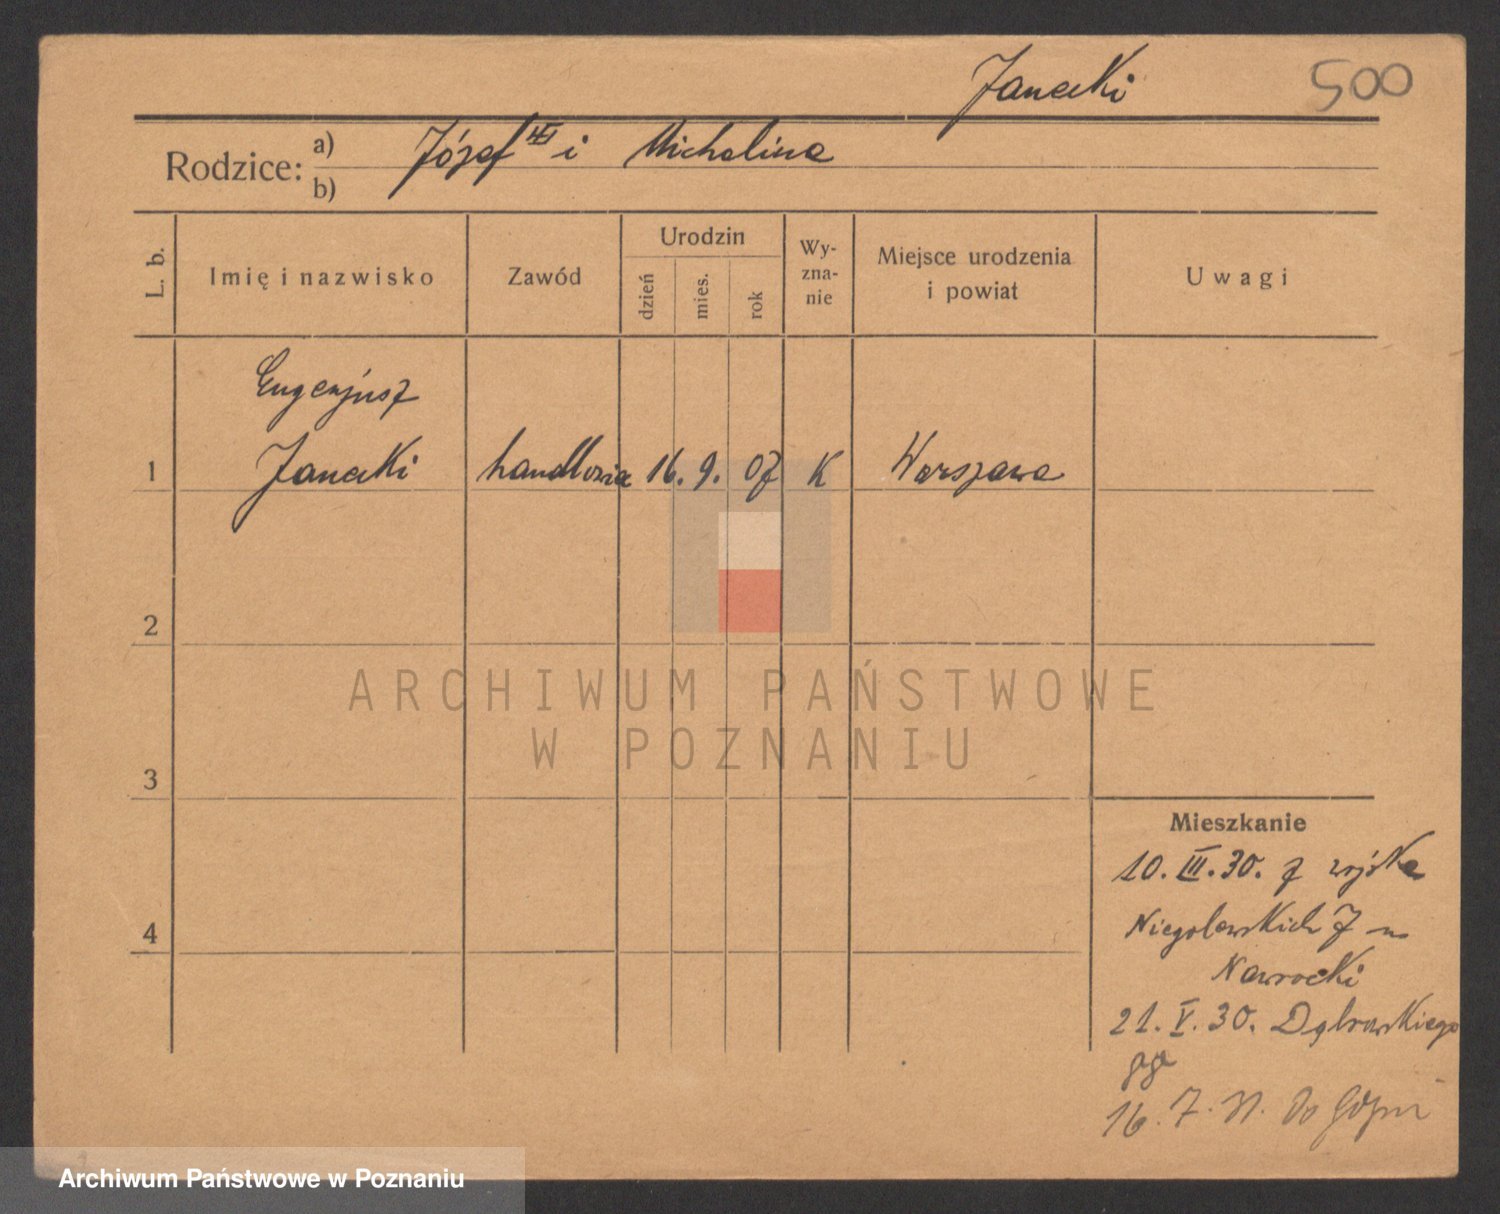 Janecki
500
Rodzice: a) Józef i Michalina
b)
L. b.
Imię i nazwisko
Zawód
Urodzin
dzień
mies.
rok
Wy-
zna-
nie
Miejsce urodzenia
i powiat
Uwagi
Eugenjusz
1 Janecki handlowiec 16. 9. 07 K Warszawa
2
3
4
ARCHIWUM PAŃSTWOWE
W POZNANIU
Mieszkanie
10. III. 30. z wojska
Niegolewskich 7
Nawrocki
21. V. 30. Dąbrowskiego
16. 7. do Gdyni
Archiwum Państwowe w Poznaniu